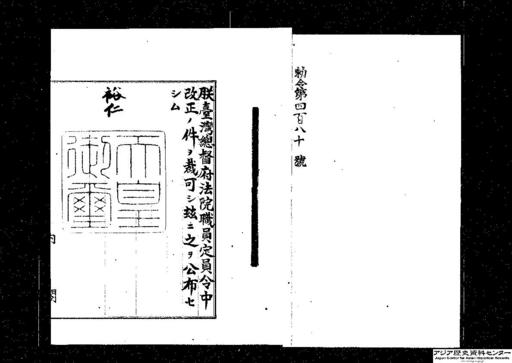 勅令第四百八十號
朕臺灣總督府法院職員定員令中
改正ノ件ヲ裁可シ玆ニ之ヲ公布セ
シム
裕仁
天皇
御璽
内閣
アジア歴史資料センター
Japan Center for Asian Historical Records